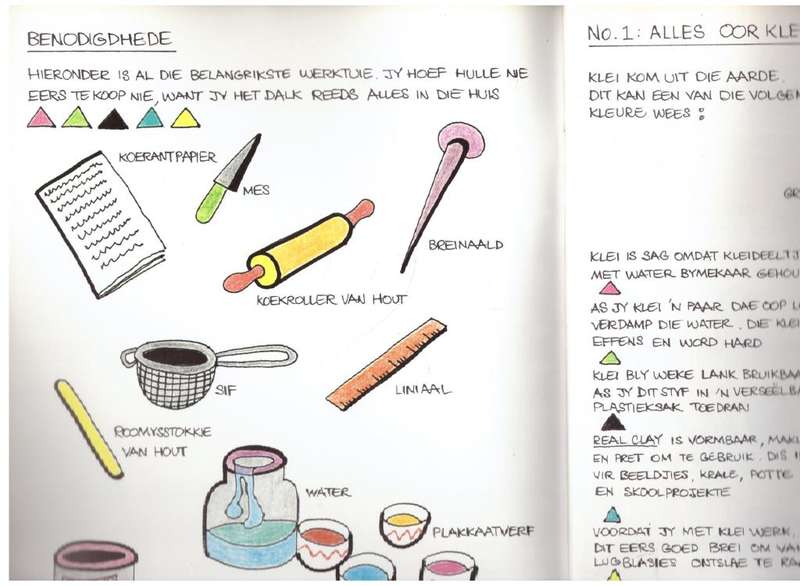 BENODIGDHEDE
HIERONDER IS AL DIE BELANGRIKSTE WERKTUIE. JY HOEF HULLE NIE
EERS TE KOOP NIE, WANT JY HET DALK REEDS ALLES IN DIE HUIS
KOERANTPAPIER
MES
BREINAALD
KOEKROLLER VAN HOUT
SIF
LINIAAL
ROOMYSSTOKKIE
VAN HOUT
WATER
PLAKKAATVERF
NO. 1: ALLES OOR KLE
KLEI KOM UIT DIE AARDE.
DIT KAN EEN VAN DIE VOLGEN
KLEURE WEES :
GR
KLEI IS SAG OMDAT KLEIDEELTJ
MET WATER BYMEKAAR GEHOU
AS JY KLEI 'N PAAR DAE OOP L
VERDAMP DIE WATER. DIE KLEI
EFFENS EN WORD HARD
KLEI BLY WEKE LANK BRUIKBAA
AS JY DIT STYF IN 'N VERSEËLBA
PLASTIEKSAK TOEDRAAI
REAL CLAY IS VORMBAAR, MAKL
EN PRET OM TE GEBRUIK. DIS I
VIR BEELDJIES, KRALE, POTTE
EN SKOOLPROJEKTE
VOORDAT JY MET KLEI WERK,
DIT EERS GOED BREI OM VAN
LUGBLASIES ONTSLAE TE RA